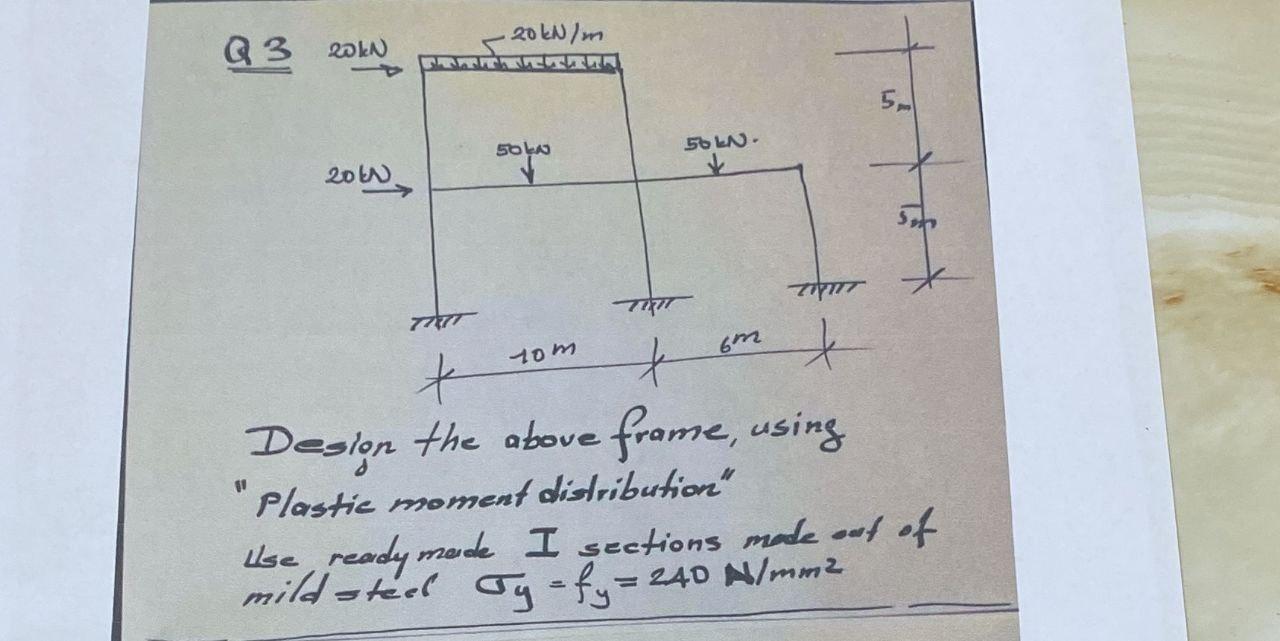 Q3 20kN 20kN/m
5m
50kN 50kN.
20kN
5m
10m 6m
Design the above frame, using
"Plastic moment distribution"
Use ready made I sections made out of
mild steel σy = fy = 240 N/mm2